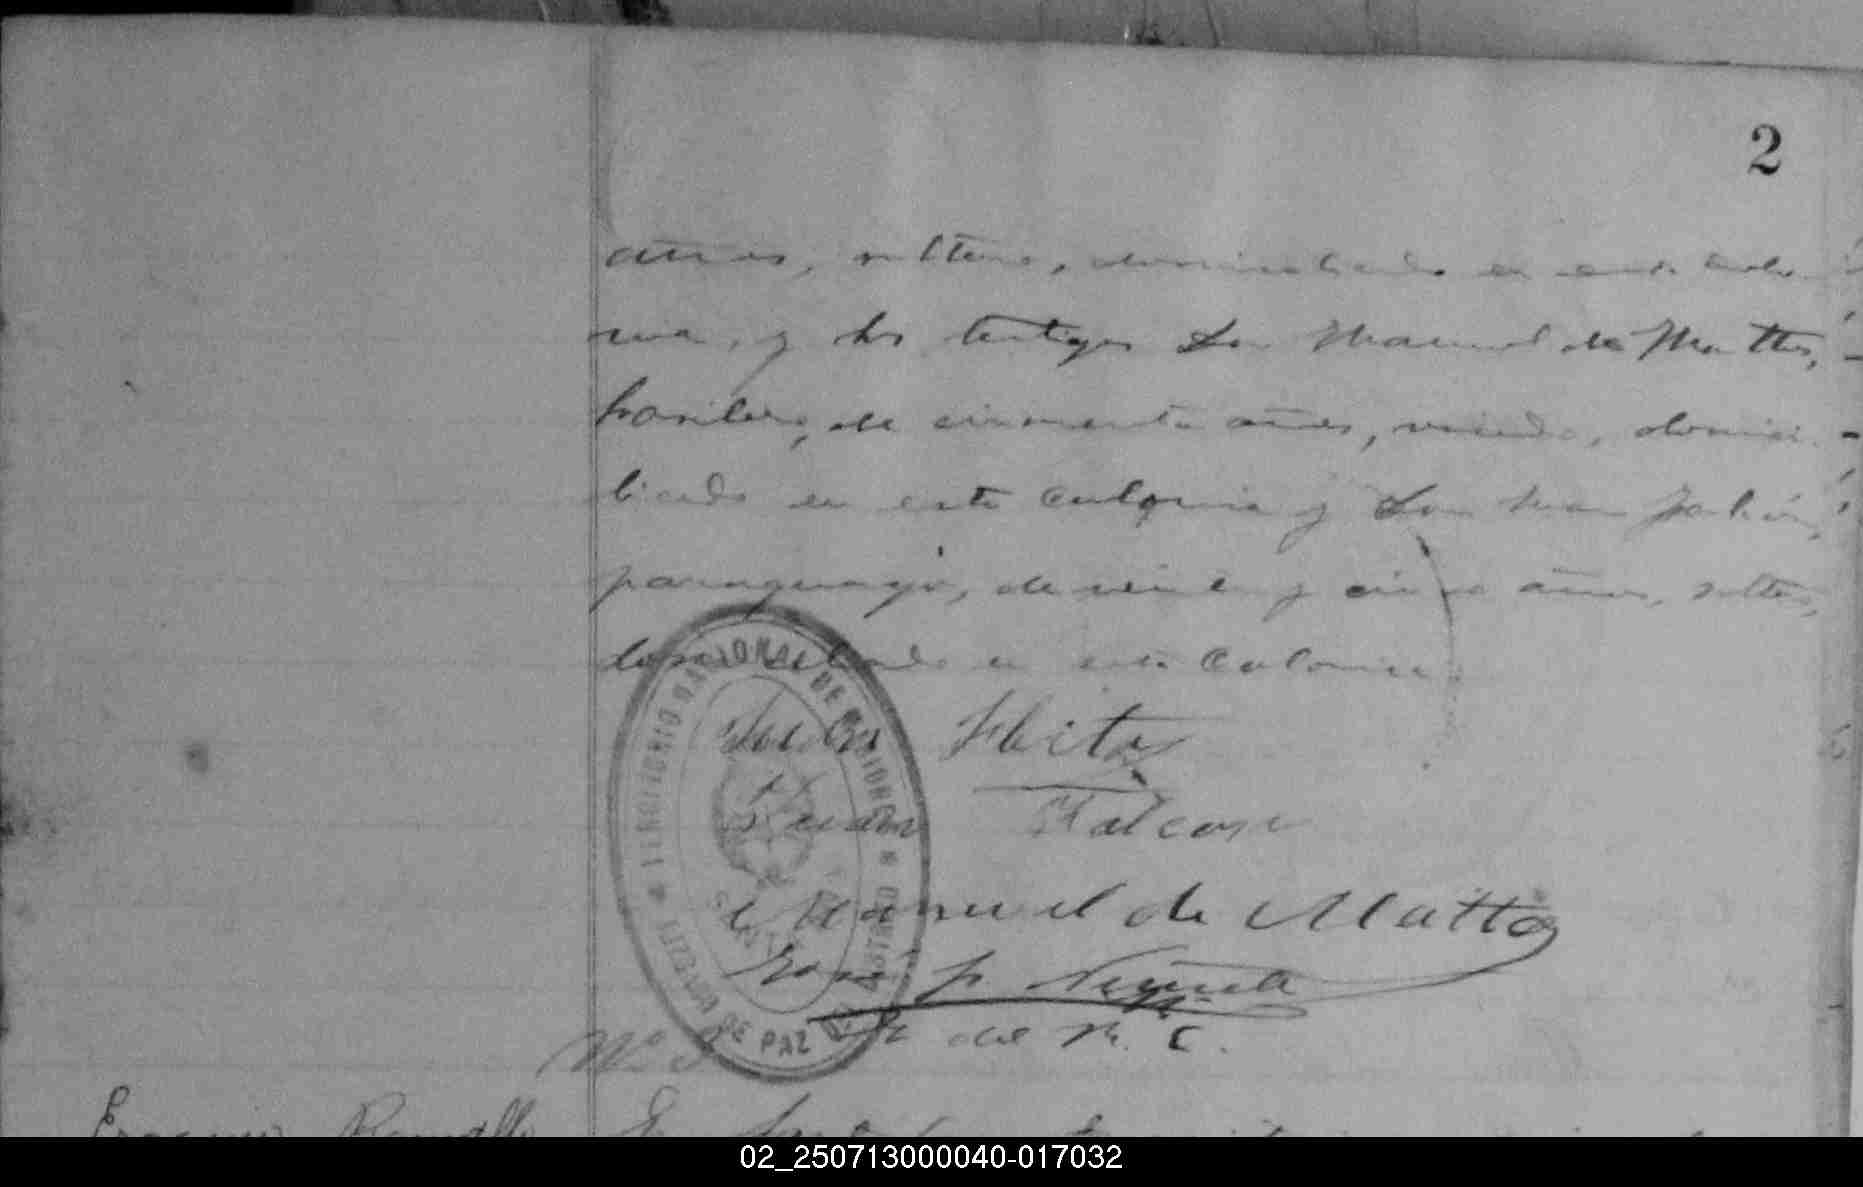 2
años, soltero, domiciliado en esta colo
nia, y los testigos Don Manuel de Mattos,
brasilero, de cincuenta años, viudo, domici
liado en esta colonia y Don Juan Falcón,
paraguayo, de veinte y cinco años, soltero,
domiciliado en esta Colonia.
Juan Falcon
Manuel de Mattos
José P.
J. del R. C.
TERRITORIO NACIONAL DE MISIONES * JUZGADO DE PAZ * DISTRITO
No
Ramallo
02_250713000040-017032